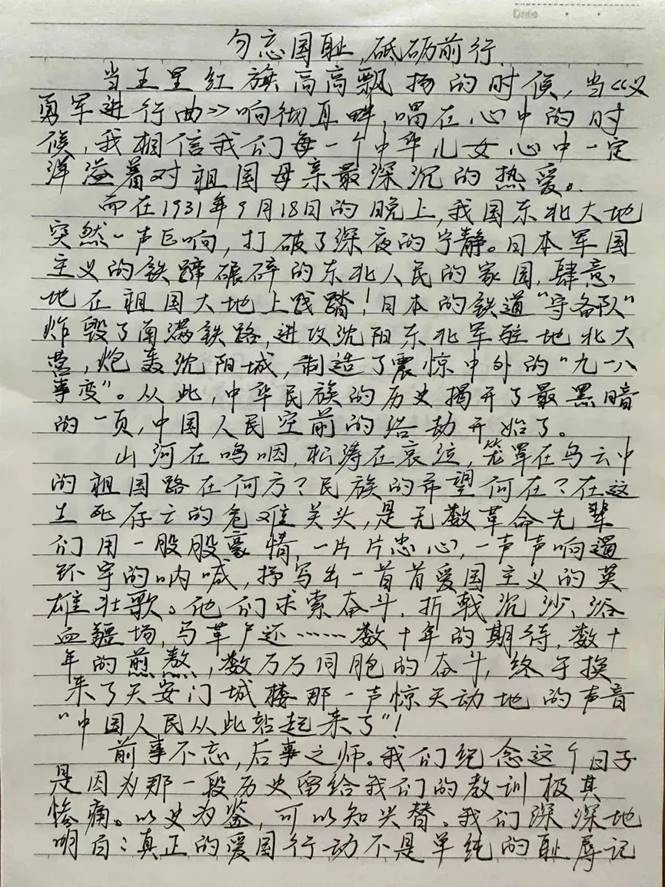 Date
勿忘国耻，砥砺前行
当五星红旗高高飘扬的时候，当《义
勇军进行曲》响彻耳畔，唱在心中的时
候，我相信我们每一个中华儿女心中一定
洋溢着对祖国母亲最深沉的热爱。
而在1931年9月18日的晚上，我国东北大地
突然一声巨响，打破了深夜的宁静。日本军国
主义的铁蹄碾碎的东北人民的家园，肆意
地在祖国大地上践踏！日本的铁道“守备队”
炸毁了南满铁路，进攻沈阳东北军驻地北大
营，炮轰沈阳城，制造了震惊中外的“九一八
事变”。从此，中华民族的历史揭开了最黑暗
的一页，中国人民空前的浩劫开始了。
山河在呜咽，松涛在哀泣，笼罩在乌云中
的祖国路在何方？民族的希望何在？在这
生死存亡的危难关头，是无数革命先辈
们用一股股豪情，一片片忠心，一声声响遏
环宇的呐喊，抒写出一首首爱国主义的英
雄壮歌。他们求索奋斗，折戟沉沙、浴
血疆场，马革尸还……数十年的期待，数十
年的煎熬，数万万同胞的奋斗，终于换
来了天安门城楼那一声惊天动地的声音
“中国人民从此站起来了”！
前事不忘，后事之师。我们纪念这个日子
是因为那一段历史留给我们的教训极其
惨痛。以史为鉴，可以知兴替。我们深深地
明白：真正的爱国行动不是单纯的耻辱记